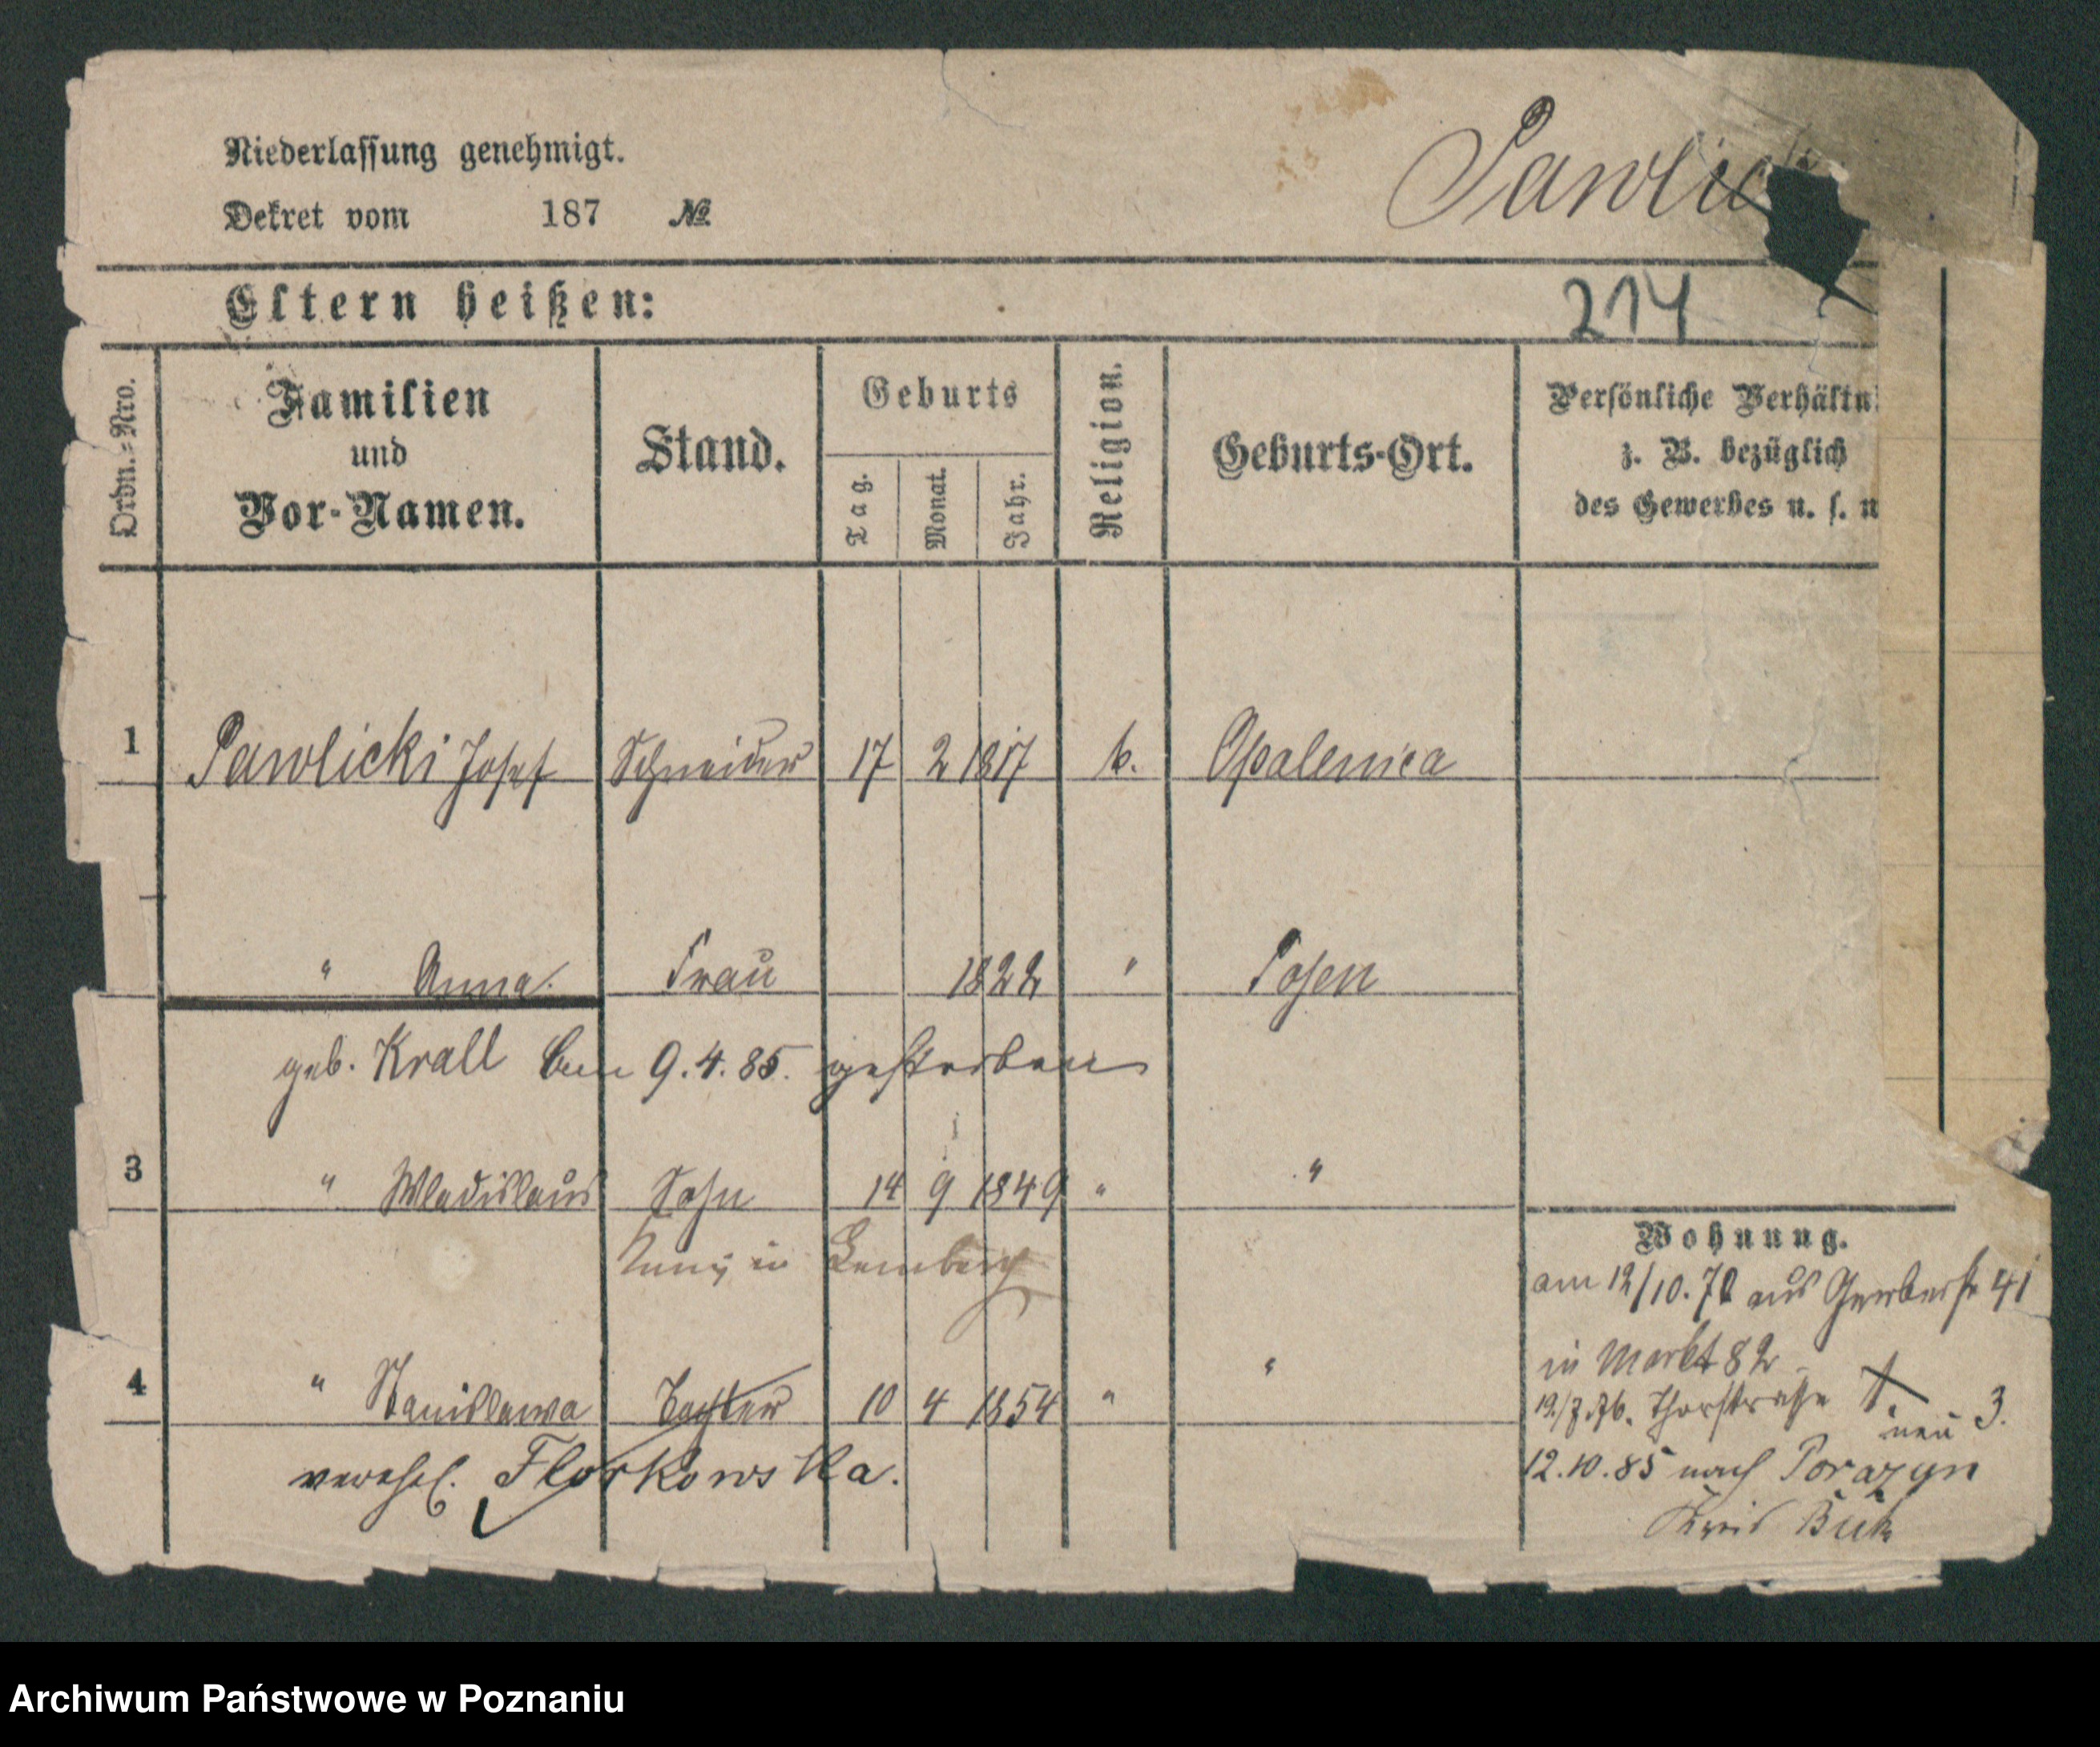 Niederlassung genehmigt.
Dekret vom 187 №
Pawlic
Eltern heißen:
214
Ordn.-Nro.
Familien und Vor-Namen.
Stand.
Geburts
Tag.
Monat.
Jahr.
Religion.
Geburts-Ort.
Persönliche Verhältn
z. B. bezüglich
des Gewerbes u. s. w
1 Pawlicki Josef Schneider 17 2 1817 k. Opalenica
" Anna. Frau 1822 " Posen
geb. Krall 9.4.85. gestorben
3 " Wladislaus Sohn 14 9 1849 " "
in Lemberg
4 " Stanislawa Tochter 10 4 1854 " "
verehel. Florkowska.
Wohnung.
am 12/10. 72 aus Gerberstr 41
in Markt 82
19./7.76. Thorstraße
neu 3.
12.10.85 nach Porazyn
Kreis Buk
Archiwum Państwowe w Poznaniu